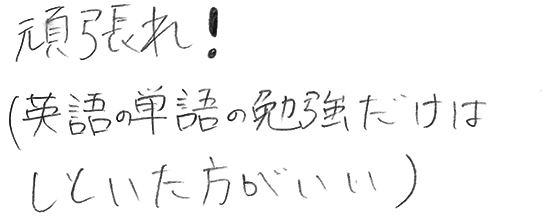 頑張れ!
(英語の単語の勉強だけは
しといた方がいい)